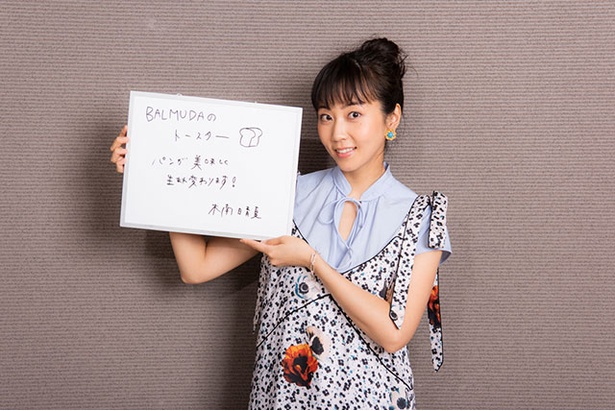 BALMUDAの
トースター
パンが美味しく
生まれ変わります!
木南晴夏